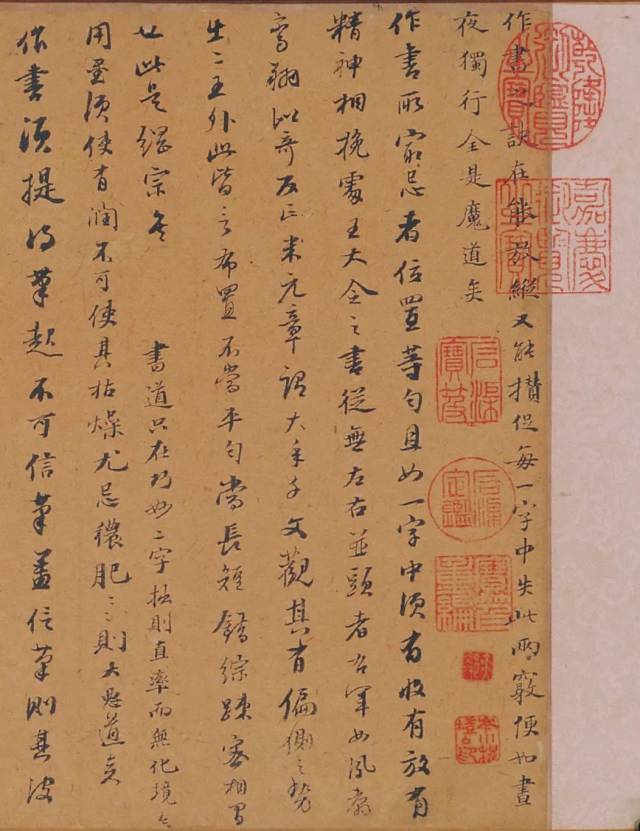 作書之訣在能放縱又能攢促每一字中失此兩竅便如晝
夜獨行全是魔道矣
作書所最忌者位置等勻且如一字中須有收有放有
精神相挽處王大令之書從無左右並頭者右軍如鳳翥
鸞翔似奇反正米元章謂大年千文觀其有偏側之勢
出二王外此皆言布置不當平勻當長短錯綜疎密相間
也此是綱宗矣 書道只在巧妙二字拙則直率而無化境矣
用墨須使有潤不可使其枯燥尤忌穠肥〻〻則大惡道矣
作書須提得筆起不可信筆蓋信筆則其波
乾隆御覽之寶
嘉慶御覽之寶
石渠寶笈
石渠定鑑
寶笈重編